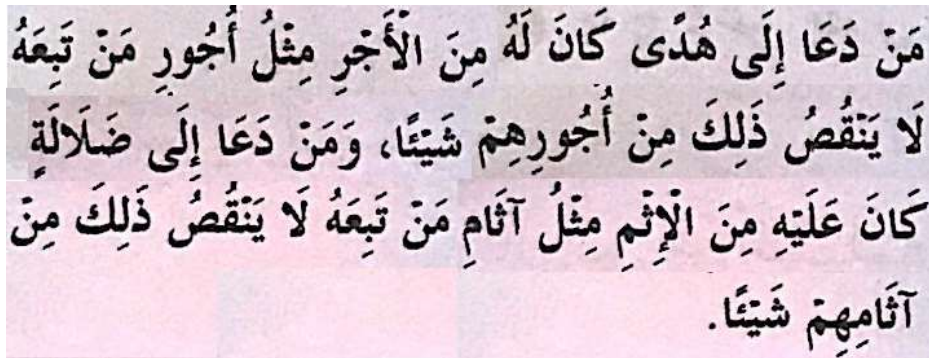 مَنْ دَعَا إِلَى هُدًى كَانَ لَهُ مِنَ الْأَجْرِ مِثْلُ أُجُورِ مَنْ تَبِعَهُ
لَا يَنْقُصُ ذَلِكَ مِنْ أُجُورِهِمْ شَيْئًا، وَمَنْ دَعَا إِلَى ضَلَالَةٍ
كَانَ عَلَيْهِ مِنَ الْإِثْمِ مِثْلُ آثَامِ مَنْ تَبِعَهُ لَا يَنْقُصُ ذَلِكَ مِنْ
آثَامِهِمْ شَيْئًا.